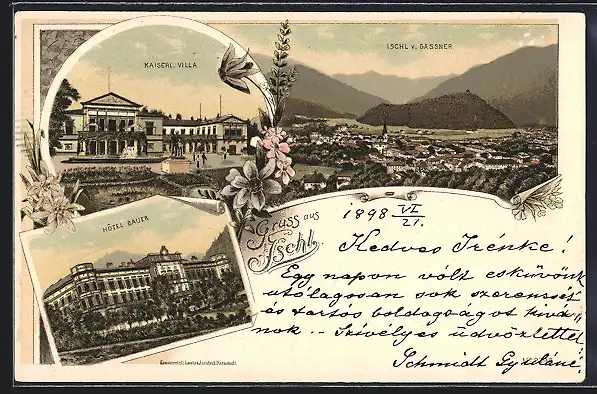 KAISERL. VILLA
ISCHL v. GASSNER
HÔTEL BAUER
Gruss aus
Ischl.
1898 VI
21.
Kedves Irénke!
Egy napon vólt esküvőnk
utólagosan sok szerencsét
és tartós boldogságot kívá„
nok. . Szívélyes üdvözlettel
Schmidt Gyuláné